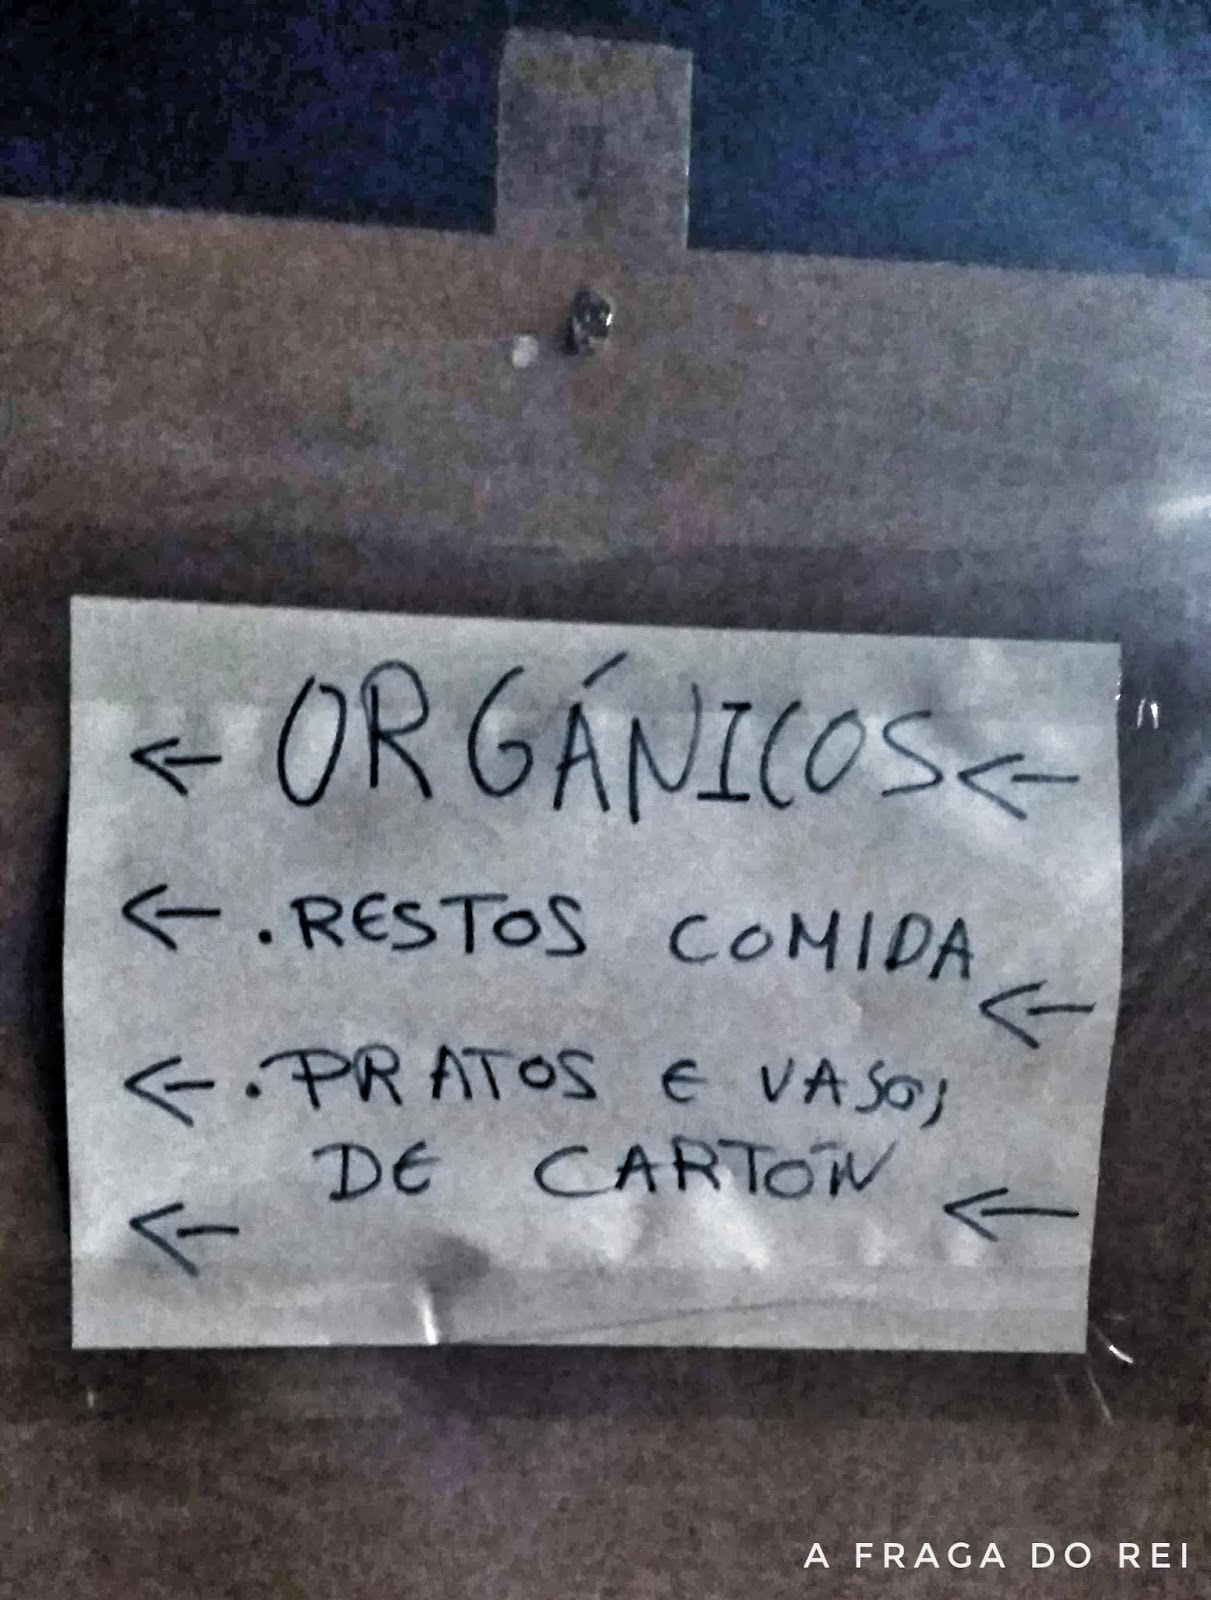 ← ORGÁNICOS ←
← . RESTOS COMIDA ←
← . PRATOS E VASOS
DE CARTÓN
← ←
A FRAGA DO REI